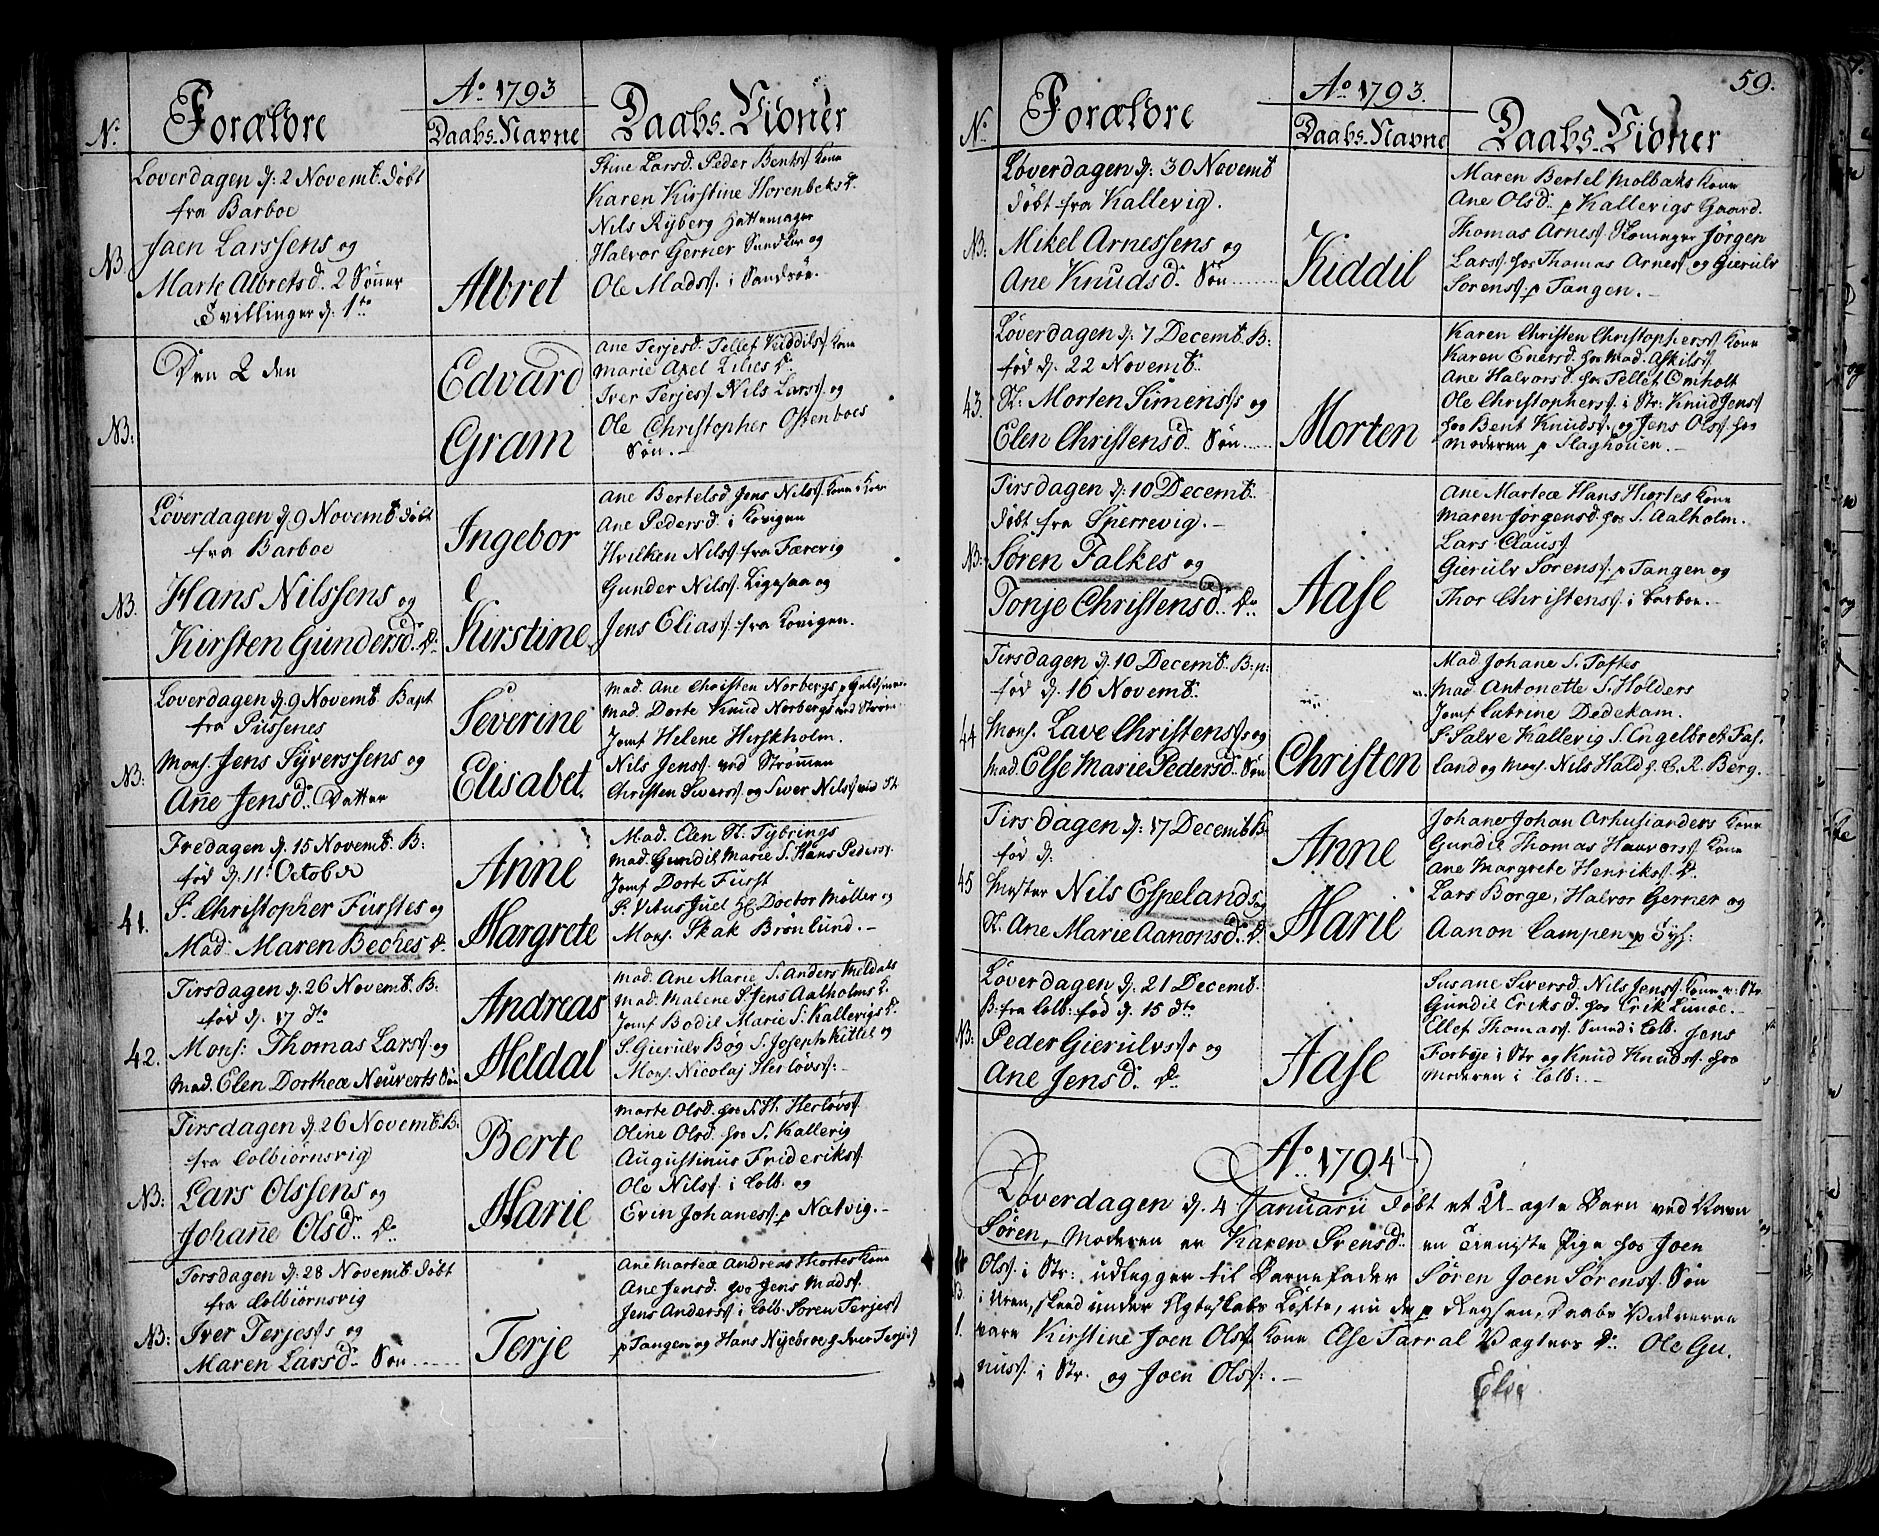 Aº 1793
Nº Forældre Daabs-Navne Daabs-Vidner
Løverdagen d: 2 Novemb. døbt
fra Barboe
NB. Jaen Larssens og
Marte Albretsd. 2 Sønner
Tvillinger d: 1te
Albret
Stine Larsd. Peder Bents. Kone
Karen Kirstine Horenbeksd.
Nils Ryberg Hattemager
Halvor Gerner Snedker og
Ole Mads. i Sandvøe.
Den 2 den
NB:
Edvard
Gram
Ane Terjesd. Tellef Kiddils. Kone
Marie Axel Lilies D.
Iver Terjes. Nils Lars. og
Ole Christopher Ostenboes
Søn.
Løverdagen d. 9 Novemb. døbt
fra Barboe
NB. Hans Nilssens og
Kirsten Gundersd. D.
Ingebor
Kirstine
Ane Bertelsd. Jens Nils. Kone i
Ane Pedersd. i Kovigen
Hvilken Nils. fra Færevig
Gunder Nils. Ligesaa og
Jens Elias. fra Kovigen.
Løverdagen d. 9 Novemb. Bapt
fra Pussenes
NB: Mons. Jens Syverssens og
Ane Jensd. Datter
Severine
Elisabet.
Mad. Ane Christen Norbergs
Mad. Dorte Knud Norbergs ved Strøm
Jomf Helene Hirskholm.
Nils Jens. ved Strømmen
Christen Sivers. og Siver Nils. ved St.
Fredagen d. 15 Novemb. B:
fød d. 11 October
41. S. Christopher Furstes og
Mad. Maren Beches D.
Anne
Margrete
Mad. Elen St. Tybrings
Mad. Gundil Marie S. Hans Peders.
Jomf Dorte Furst
S. Vitus Juel Doctor Møller og
Mons. Skak Brønlund.
Tirsdagen d. 26 Novemb. B.
fød d. 17 do
42. Mons: Thomas Lars. og
Mad. Elen Dortheæ Neuverts Søn
Andreas
Meldal
Mad. Ane Marie S. Anders Meldals
Mad. Malene S. Jens Aalholms K.
Jomf Bodil Marie S. Kallevigs D.
S. Gierulv Bog S. Joseph Kittel og
Mons. Nicolaj Herløvs:
Tirsdagen d. 26 Novemb. B.
fra Colbiørnsvig
NB: Lars Olssens og
Johañe Olsd. D.
Berte
Marie
Marte Olsd. hos S. H. Herløvs.
Oline Olsd. hos S. Kallevig
Augustinus Frideriks.
Ole Nils. i Colb. og
Evin Johanes. p Natvig.
Torsdagen d. 28 Novemb. døbt
fra Colbiørnsvig
NB: Iver Terjes. og
Maren Larsd. Søn
Terje
Ane Marteæ Andreas Thortes Kone
Ane Jensd. hos Jens Mads.
Jens Anders. i Colb. Søren Terjes.
p Tangen og Hans Nyebroe
59.
Aº 1793.
Nº Forældre Daabs-Navne Daabs-Vidner
Løverdagen d: 30 Novemb
døbt fra Kallevig.
NB: Mikel Arnessens og
Ane Knudsd. Søn
Kiddil
Maren Bertel Molbaks Kone
Ane Olsd. p Kallevigs Gaard.
Thomas Arnes. Jørgen
Lars. hos Thomas Arnes. og Gierulv
Sørens. p Tangen.
Løverdagen d: 7 Decemb. B:
fød d. 22 Novemb.
43. St: Morten Simens. og
Elen Christensd. Søn
Morten
Karen Christen Christophers. Kone
Karen Enersd. hos Mad. Askils.
Ane Halvorsd. hos Tellef Omholt
Ole Christophers. i Str: Knud Jens.
hos Bent Knuds. og Jens Ols. hos
Moderen p Flaghouen.
Tirsdagen d. 10 Decemb.
døbt fra Sperrevig.
NB: Søren Falkes og
Tonje Christensd. D.
Aase
Ane Marteæ Hans Thortes Kone
Maren Jørgensd. hos S. Aalholm.
Lars Claus.
Gierulv Sørens. p Tangen og
Thor Christens. i Barboe.
Tirsdagen d. 10 Decemb. B. p:
fød d. 16 Novemb.
44 Mons. Lave Christens. og
Mad. Else Marie Pedersd. Søn
Christen
Mad. Johane S. Toftes
Mad. Antonette S. Hølders
Jomf Catrine Dedekam.
S. Salve Kallevig S. Engelbret Fas-
land og Mons. Nils Hald
Tirsdagen d: 17 Decemb B.
fød d:
45 Mester Nils Espelands og
St. Ane Marie Aanonsd. D.
Anne
Marie
Johane Johan Arhusianders Kone
Gundil Thomas Haavors. Kone
Ane Margrete Henriks. D.
Lars Borge, Halvor Gerner og
Aanon Campen p
Løverdagen d. 21 Decemb.
B. fra Colb: fød d 15 do
NB: Peder Gierulvs. og
Ane Jensd. D.
Aase
Susane Siversd. Nils Jens. Kone v. Str.
Gundil Eriksd. hos Erik Lunøe.
Ellef Thomas. Smed i Colb. Jens
Torbye i Str og Knud Knuds. hos
Moderen i Colb:
Aº. 1794
Løverdagen d. 4 Januarii døbt et U-ægte Barn ved Navn
Søren, Moderen er Karen Svensd. en Tieniste Pige hos Joen
Ols. i Str: udlegger til Barnefader Søren Joen Sørens. Søn
i Uren, skeed under Ægteskabs Løfte, nu de p Reysen, Daabs Vidnerne
1. vare Kirstine Joen Ols. Kone Else Tarral Vægters D. Ole Gu-
nus. i Str. og Joen Ols: